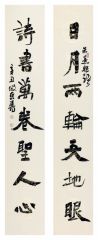 日月兩輪天地眼
詩書萬卷聖人心